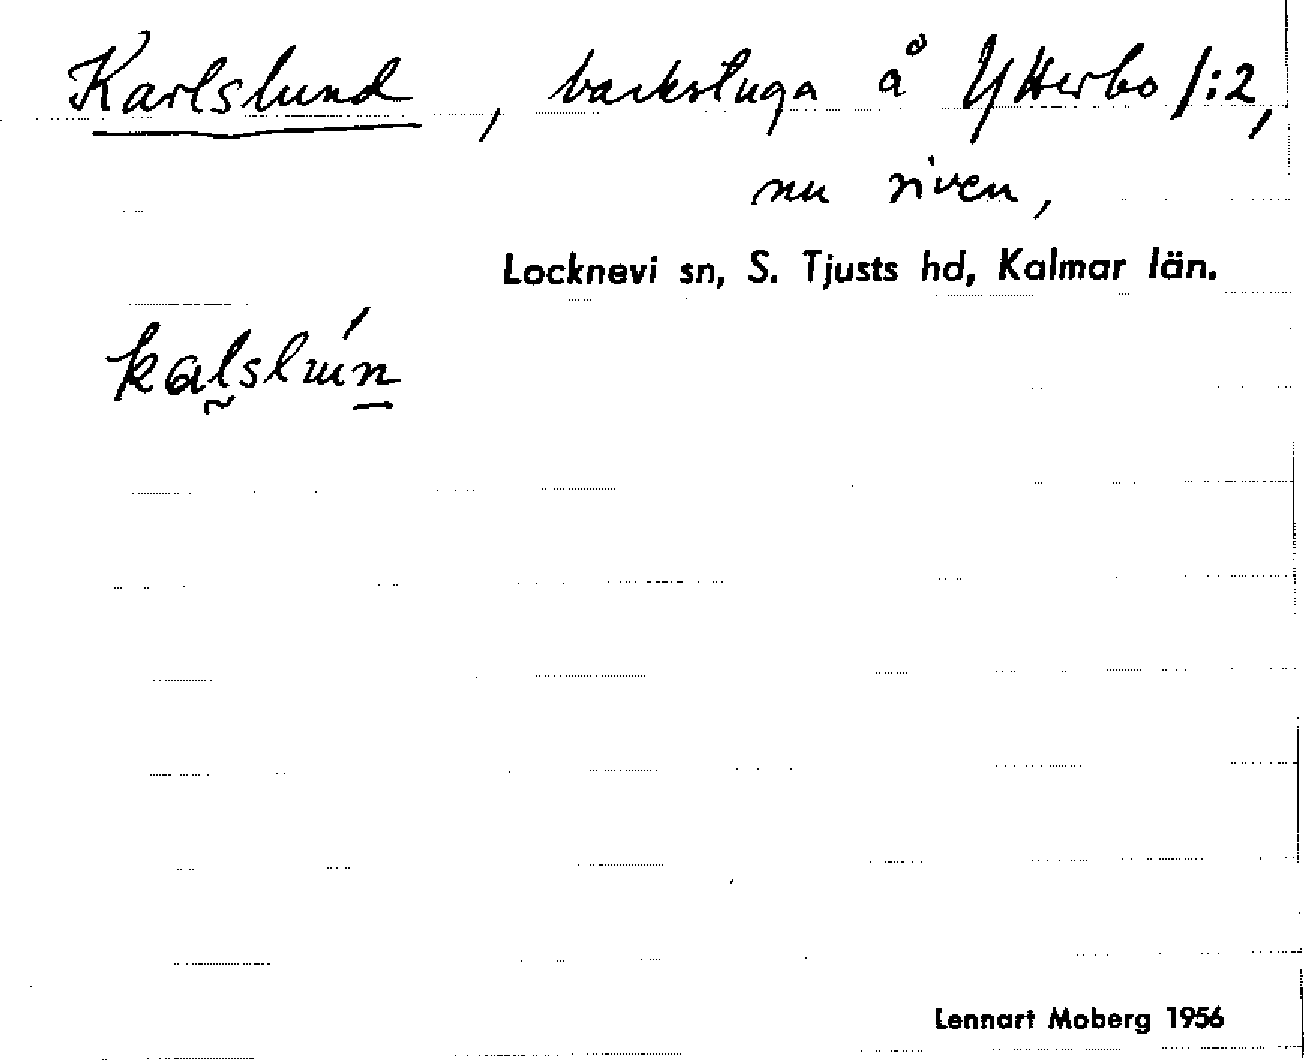 Karlslund, backstuga å Ytterbo 1:2,
nu riven,
Locknevi sn, S. Tjusts hd, Kalmar län.
Lennart Moberg 1956